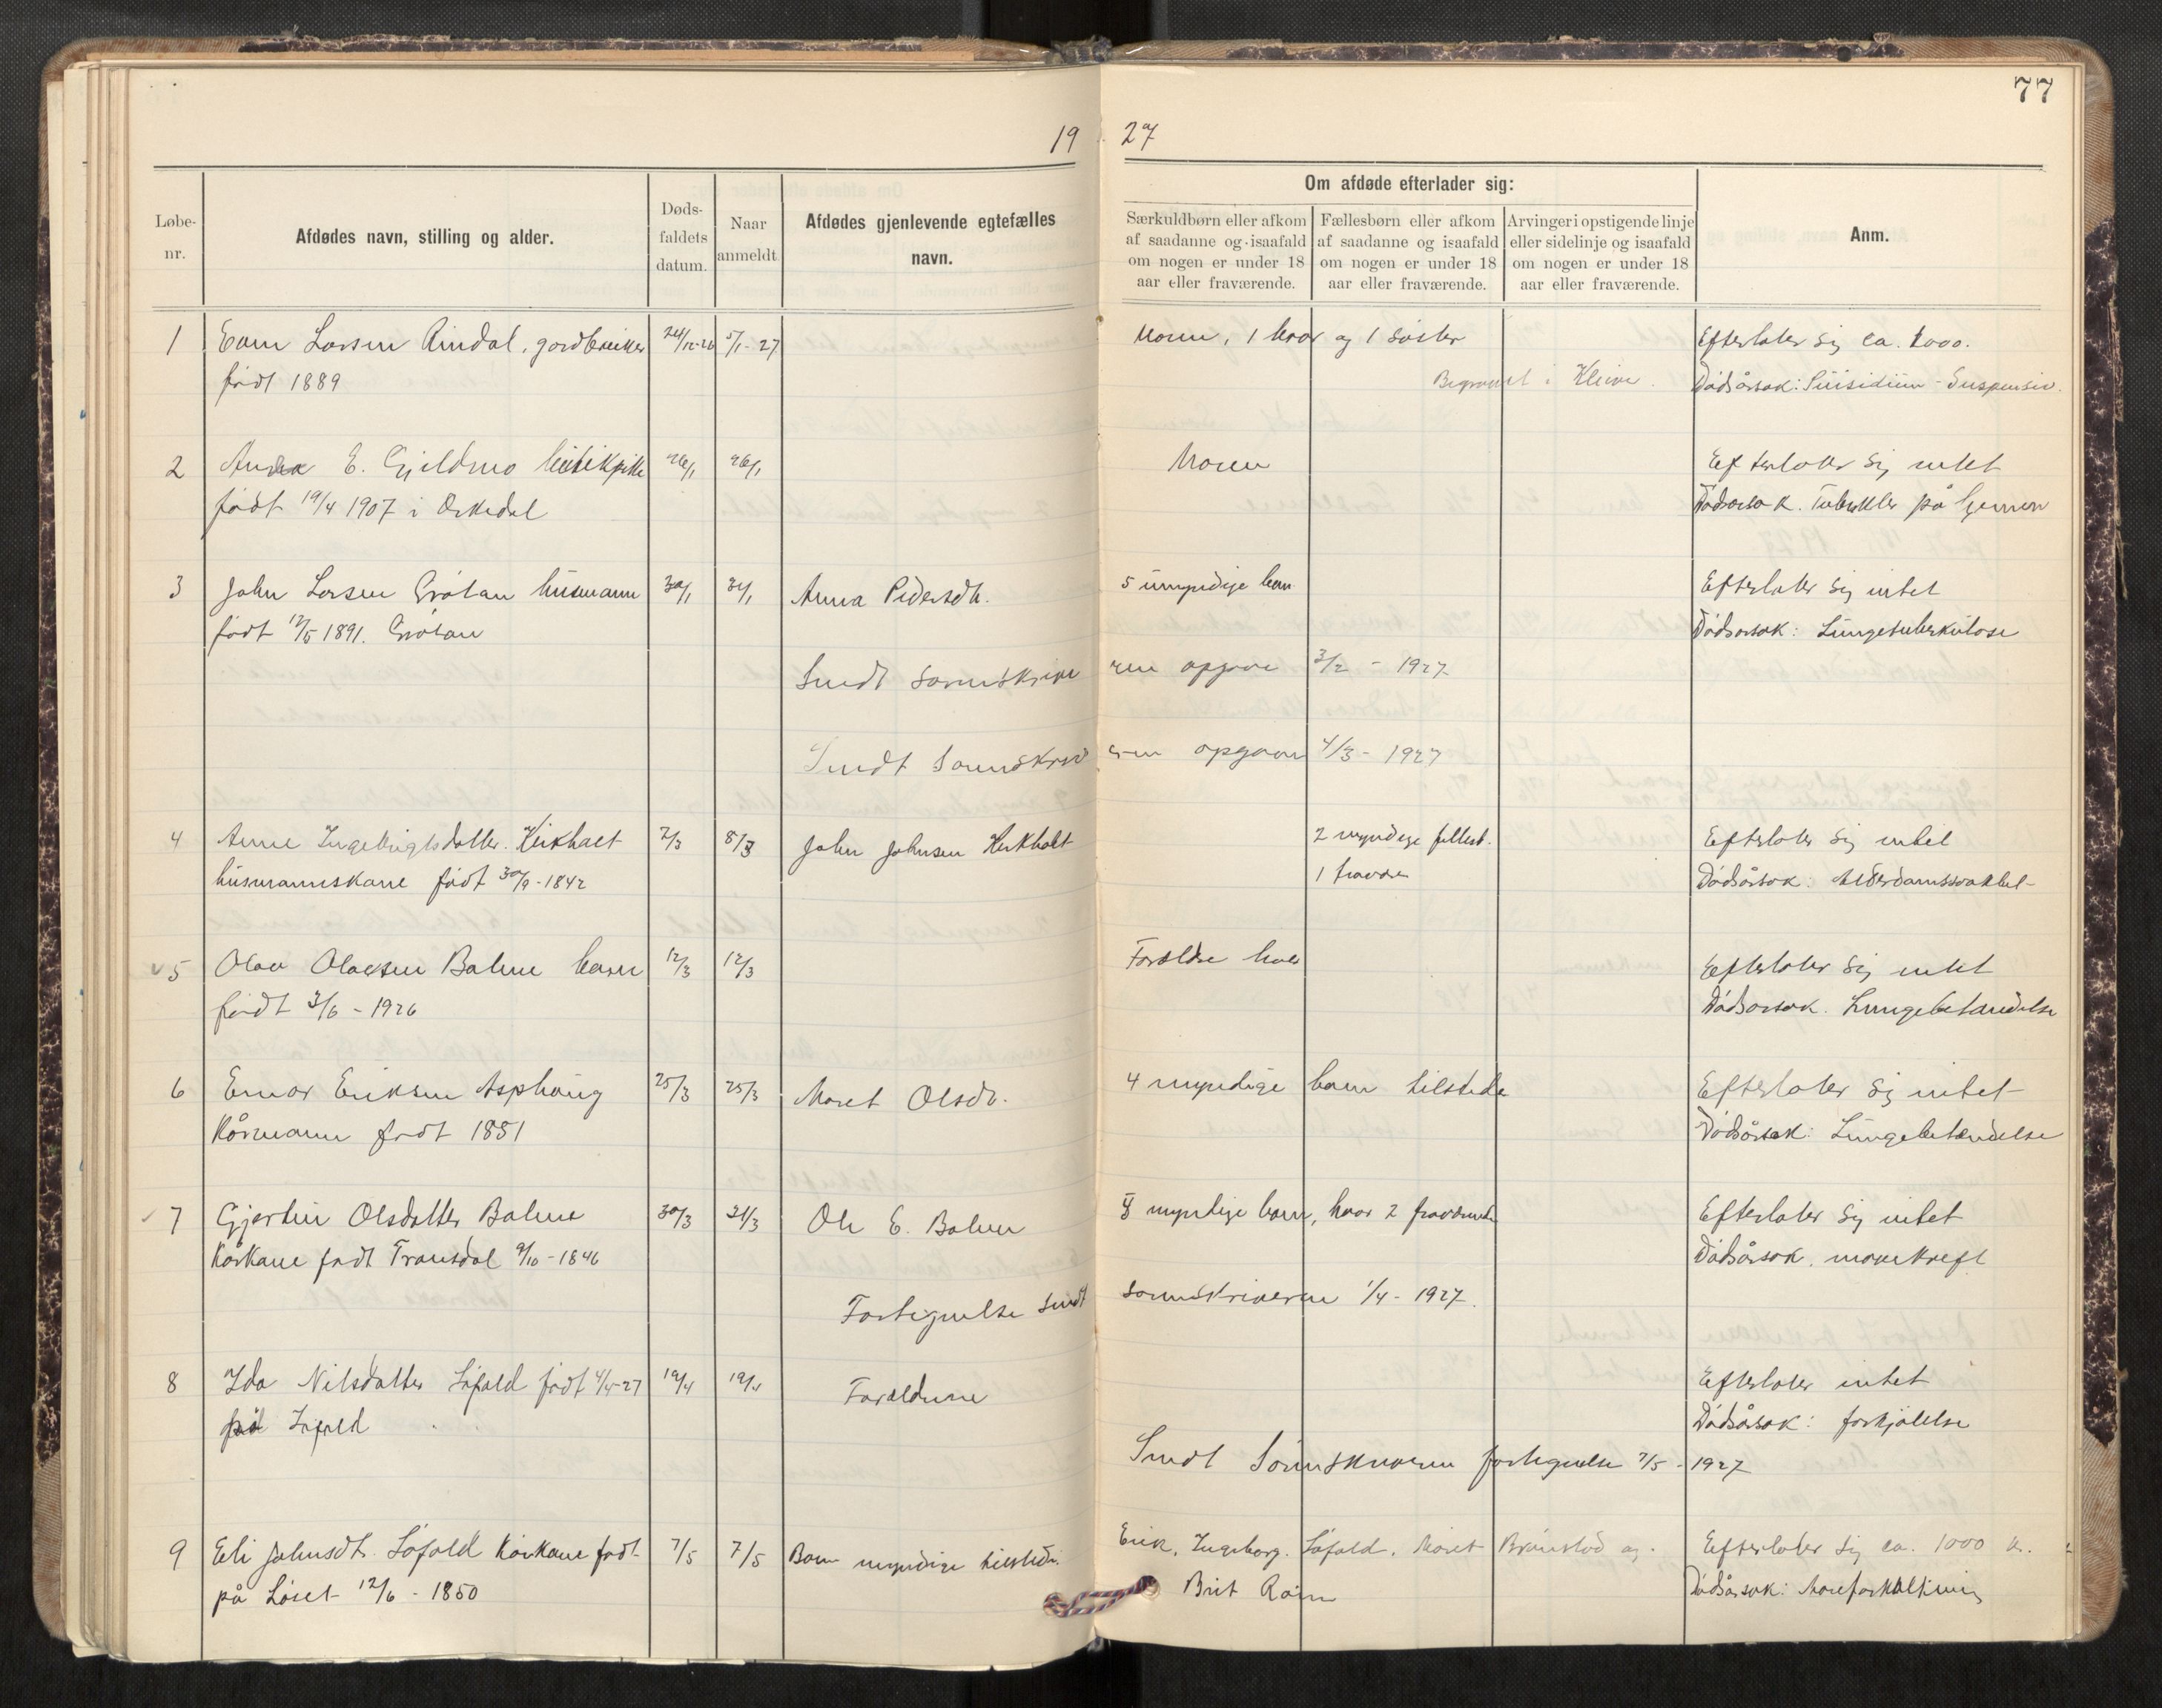 77
19 27
Løbe-
nr.
Afdødes navn, stilling og alder.
Døds-
faldets
datum.
Naar
anmeldt.
Afdødes gjenlevende egtefælles
navn.
Om afdøde efterlader sig:
Særkuldbørn eller afkom
af saadanne og isaafald
om nogen er under 18
aar eller fraværende.
Fællesbørn eller afkom
af saadanne og isaafald
om nogen er under 18
aar eller fraværende.
Arvinger i opstigende linje
eller sidelinje og isaafald
om nogen er under 18
aar eller fraværende.
Anm.
1 Larsen Rindal, gardbruker 24/12-26 5/1-27 Moren, 1 bror og 1 søster Efterlater sig ca. 1000.
født 1889 Begravet i Dødsårsak: Suisidium - Suspensio.
2 E. Gjeldmo 26/1 26/1 Moren Efterlater sig intet
født 19/4 1907 i Orkedal Dødsorsak. Tuberkler på hjernen
3 John Larsen Grøtan husmann 30/1 31/1 Anna Pedersdtr. 5 umyndige barn Efterlater sig intet
født 12/5 1891. Grøtan Dødsorsak: Lungetuberkulose
Sendt sorenskriveren opgave 3/2 - 1927
Sendt Sorenskriveren opgave 4/3 - 1927
4 Anne Ingebrigtsdatter Kirkholt 7/3 8/3 John Johnsen Kirkholt 2 myndige fellesb. Efterlater sig intet
husmannskone født 30/9 - 1842 1 fravær Dødsårsak: Alderdomssvakhet
5 Olav Olavsen Bolme barn 12/3 12/3 Foreldre Efterlater sig intet
født 3/6 - 1926 Dødsorsak. Lungebetændelse
6 Einar Eriksen Asphaug 25/3 25/3 Maret Olsdtr. 4 myndige barn tilstede Efterlater sig intet
Kårmann født 1851 Dødsårsak: Lungebetændelse
7 Gjertru Olsdatter Bolme 30/3 31/3 Ole E. Bolme 8 myndige barn, hvor 2 fraværende Efterlater sig intet
Kårkone født Tronsdal 9/10 - 1846 Dødsårsak. mavekreft
Fortegnelse sendt sorenskriveren 1/4 - 1927.
8 Ida Nilsdatter Løfald født 4/4-27 19/4 19/4 Foreldrene Efterlater intet
på Løfald Dødsårsak: forkjølelse
Sendt Sorenskriveren fortegnelse 7/5 - 1927
9 Eli Johnsdt. Løfald Kårkone født 7/5 7/5 Barn myndige tilstede. Erik, Ingeborg. Løfald, Maret Brønstad og Efterlater sig ca. 1000 kr.
på Løset 12/6 - 1850 Brit Røen Dødsårsak: Åreforkalkning